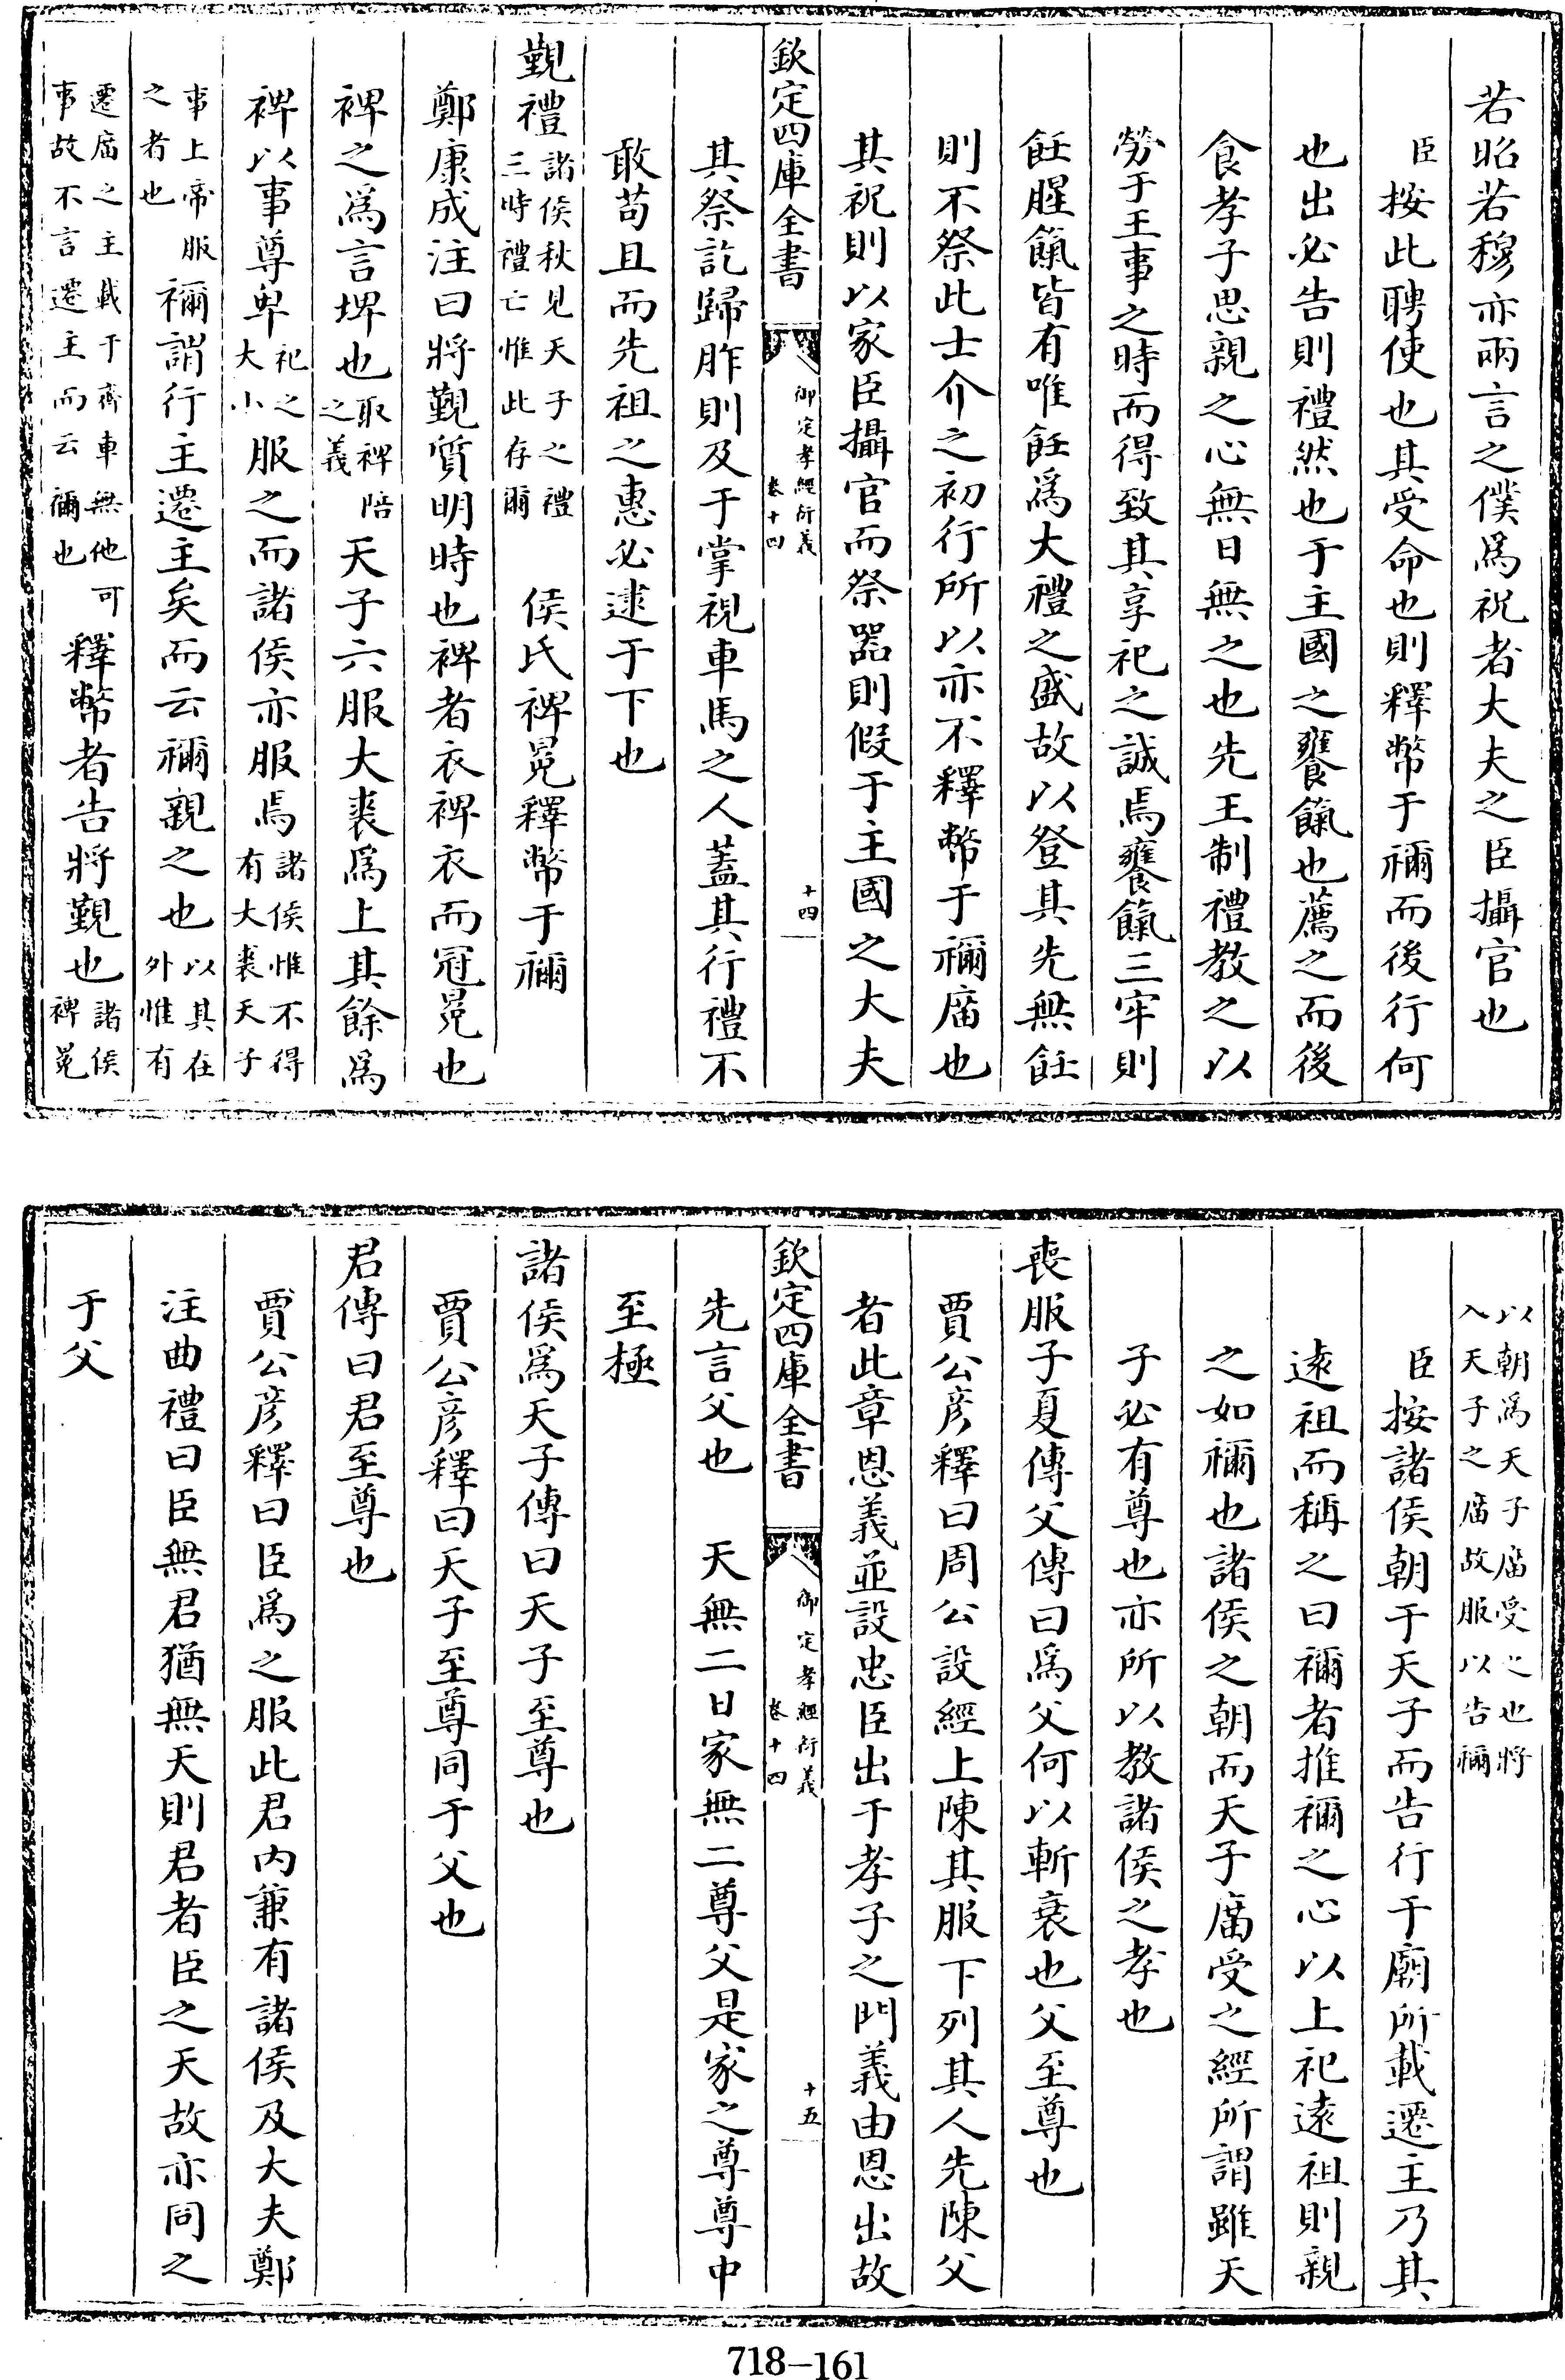 若昭若穆亦兩言之僕為祝者大夫之臣攝官也
臣按此聘使也其受命也則釋幣于禰而後行何
也出必告則禮然也于主國之饔餼也薦之而後
食孝子思親之心無日無之也先王制禮教之以
勞于王事之時而得致其享祀之誠焉饔餼三牢則
飪腥餼皆有唯飪為大禮之盛故以登其先無飪
則不祭此士介之初行所以亦不釋幣于禰廟也
其祝則以家臣攝官而祭器則假于主國之大夫
欽定四庫全書 御定孝經衍義 卷十四 十四
其祭訖歸胙則及于掌視車馬之人蓋其行禮不
敢苟且而先祖之惠必逮于下也
覲禮諸侯秋見天子之禮三時禮亡惟此存爾 侯氏裨冕釋幣于禰
鄭康成注曰將覲質明時也裨者衣裨衣而冠冕也
裨之為言埤也取裨陪之義天子六服大裘為上其餘為
裨以事尊卑祀之大小服之而諸侯亦服焉諸侯惟不得有大裘天子
事上帝服之者也禰謂行主遷主矣而云禰親之也以其在外惟有
遷廟之主載于齋車無他可事故不言遷主而云禰也釋幣者告將覲也諸侯裨冕
以朝為天子廟受之也將入天子之廟故服以告禰
臣按諸侯朝于天子而告行于廟所載遷主乃其
遠祖而稱之曰禰者推禰之心以上祀遠祖則親
之如禰也諸侯之朝而天子廟受之經所謂雖天
子必有尊也亦所以教諸侯之孝也
喪服子夏傳父傳曰為父何以斬衰也父至尊也
賈公彥釋曰周公設經上陳其服下列其人先陳父
者此章恩義並設忠臣出于孝子之門義由恩出故
欽定四庫全書 御定孝經衍義 卷十四 十五
先言父也 天無二日家無二尊父是家之尊尊中
至極
諸侯為天子傳曰天子至尊也
賈公彥釋曰天子至尊同于父也
君傳曰君至尊也
賈公彥釋曰臣為之服此君內兼有諸侯及大夫鄭
注曲禮曰臣無君猶無天則君者臣之天故亦同之
于父
718-161